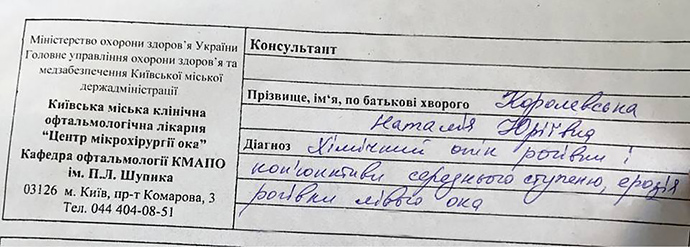 Міністерство охорони здоров'я України
Головне управління охорони здоров'я та
медзабезпечення Київської міської
держадміністрації
Київська міська клінічна
офтальмологічна лікарня
"Центр мікрохірургії ока"
Кафедра офтальмології КМАПО
ім. П.Л. Шупика
03126 м. Київ, пр-т Комарова, 3
Тел. 044 404-08-51
Консультант
Прізвище, ім'я, по батькові хворого Королевська
Наталія Юріївна
Діагноз Хімічний опік рогівки і
кон'юнктиви середнього ступеню, ерозія
рогівки лівого ока